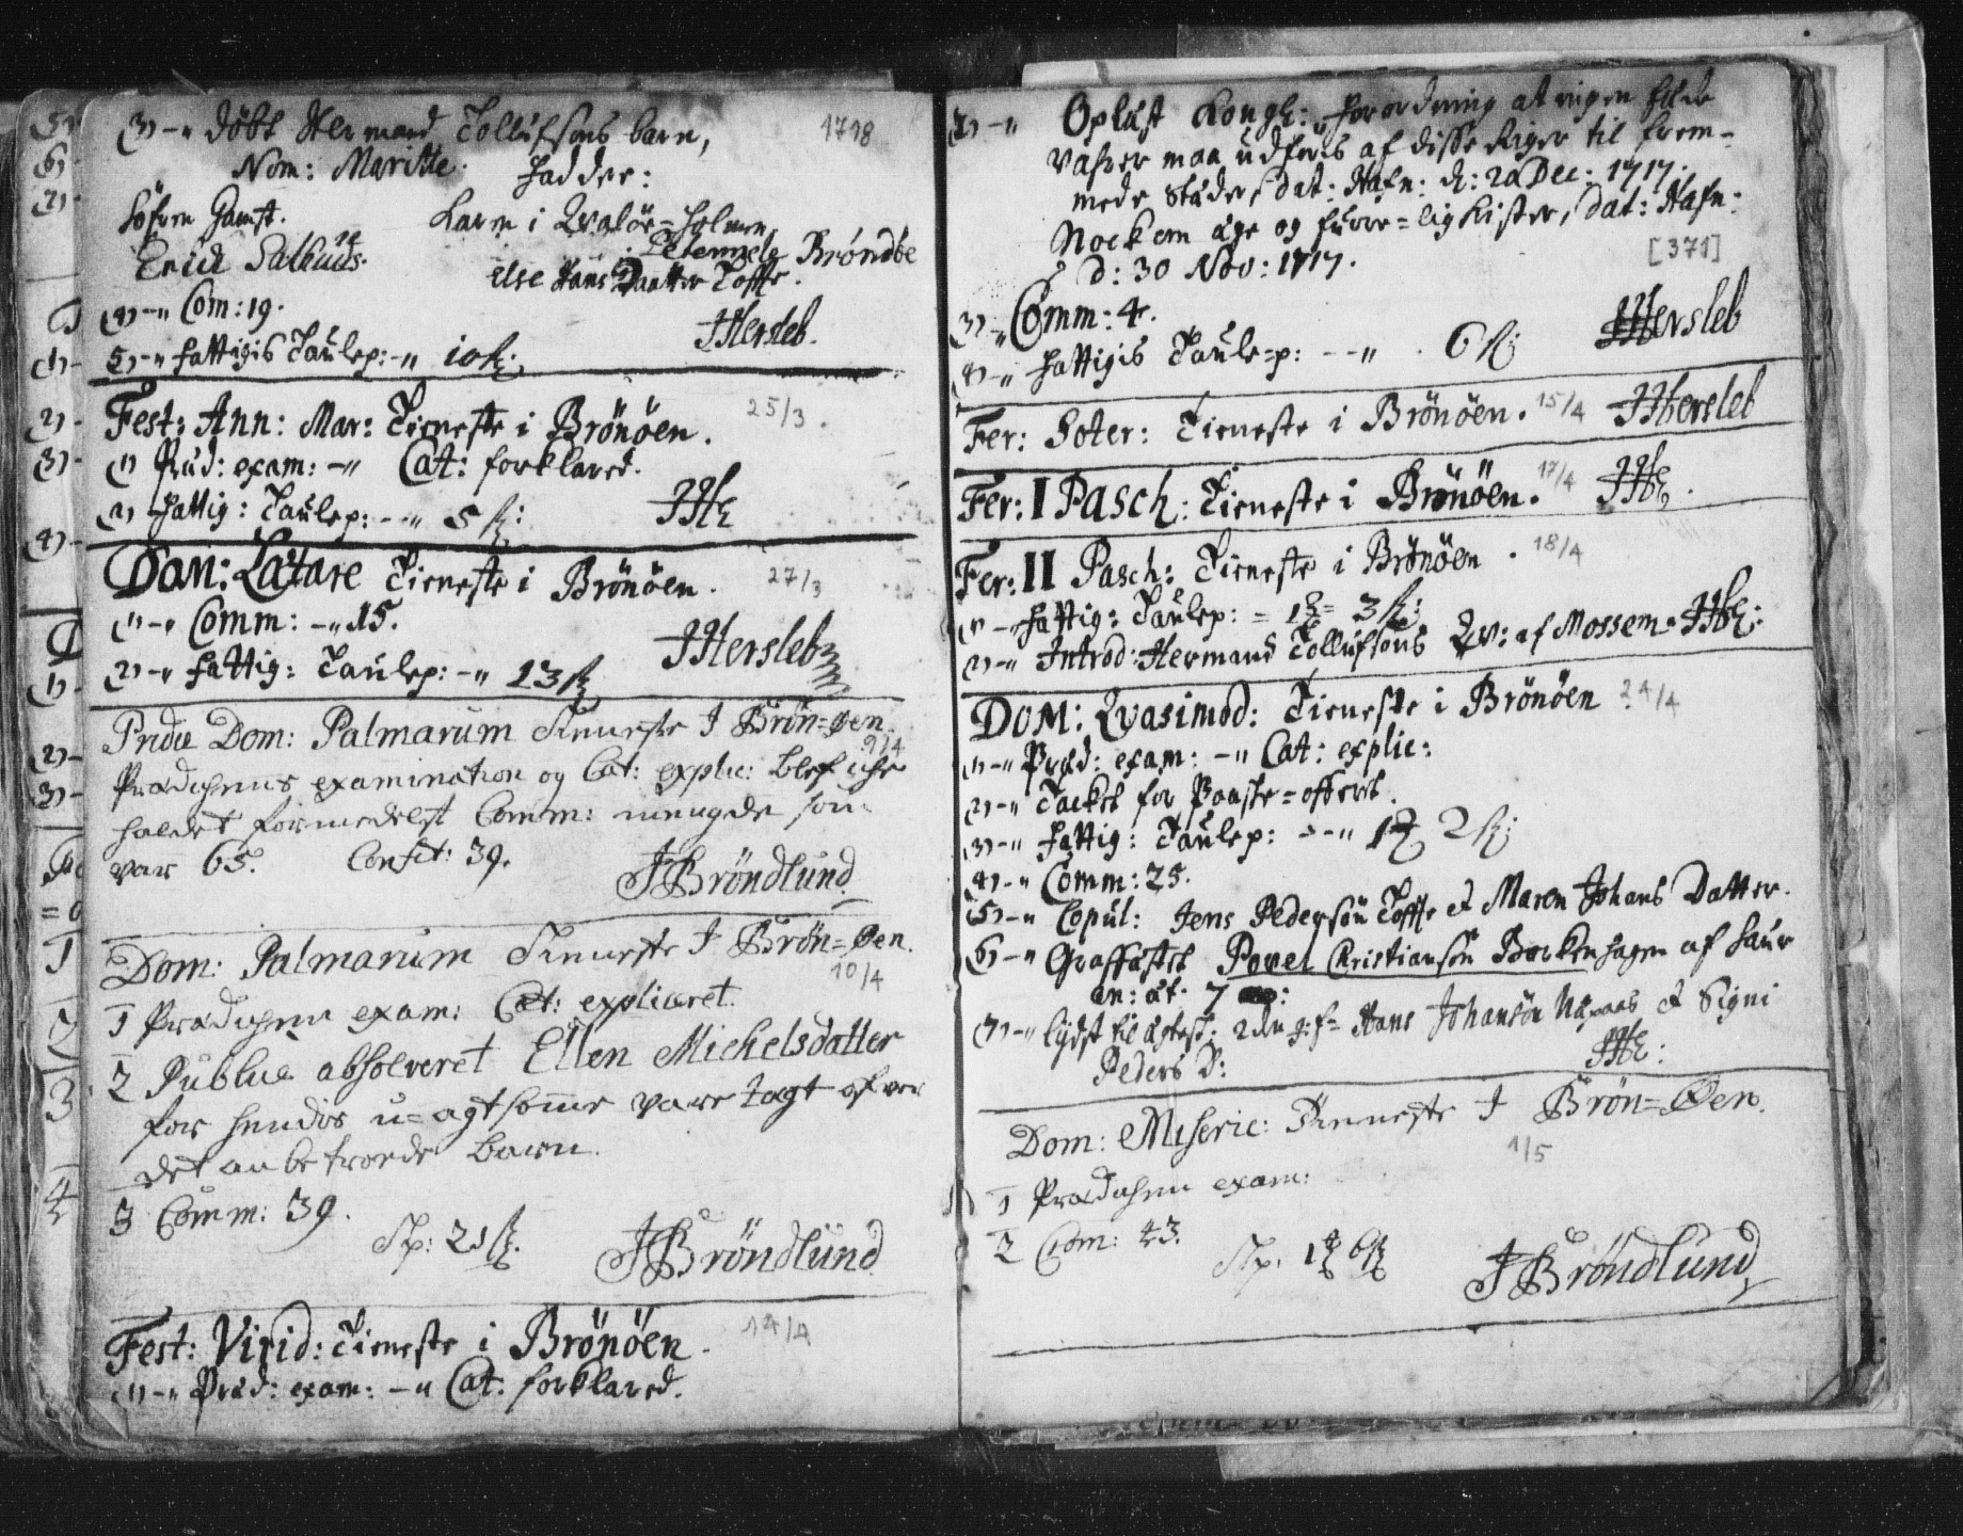 3) -" döbt Hermand Tollufsöns barn, 1718
Nom: Maritte. Fadder:
Söfren Gamst. Karn i Qvalöe=holmen,
Erick Salhuus. Petternele Bröndbe
Else Hans Daatter Tofte.
4) -" Com: 19.
5) -" Fattigis Taulep: -" 10 ß: JHersleb.
Fest: Ann: Mar: Tieneste i Brönöen. 25/3.
1) Præd: exam: -" Cat: forklared.
2) Fattig: Taulep: - -" 5 ß: JHℓ
Dom: Lætare Tieneste i Brönöen. 27/3
1) -" Comm: -" 15.
2) -" Fattig: Taulep: -" 13 ß JHersleb
Pridie Dom: Palmarum Tieneste I Brön=Øen. 9/4
Prædichens examination og Cat: explic: blef iche
holdet formedelst Comm: mengde som
var 65. Confit: 39. JBröndlund
Dom: Palmarum Tieneste I Brön=Øen. 10/4
1 Prædichen exam: Cat: expliceret.
2 Publice absolveret Ellen Michelsdatter
for hendis u=agtsomme vare tagt ofver
det anbetroede barn.
3 Comm: 39. Tp: 21 ß. JBröndlund
Fest: Virid: Tieneste i Brönöen. 14/4
1) -" Præd: exam: -" Cat: forklared.
2) -" Oplæst Kongl: Forordning at ingen
vahrer maa udföris af disse Riger til frem-
mede Stæder, dat: Hafn: d: 20 Dec: 1717.
Nock om æge og furre=lig kister, dat: Hafn:
d: 30 Nov: 1717. [371]
3) -" Comm: 4.
4) -" Fattigis Taulep: - -" 6 ß: JHersleb
Fer: Soter: Tieneste i Brönöen. 15/4 JHersleb
Fer: I Pasch: Tieneste i Brönöen. 17/4 JHℓ.
Fer: II Pasch: Tieneste i Brönöen. 18/4
1) -" Fattig: Taulep: = 1 = 3 ß:
2) -" Introd: Hermand Tollufsöns Qv: af Mossem. JHℓ:
DOM: Qvasimod: Tieneste i Brönöen 24/4
1) -" Præd: exam: -" Cat: explic:
2) -" Tacket for Paaske=offeret.
3) -" Fattig: Taulep: - -" 1 2 ß:
4) -" Comm: 25.
5) -" Copul: Jens Pedersön Tofte et Maren Johans Datter.
6) -" Graffæstet Povel Christiansön Bockenhagen af
an: æt. 7
7) -" lydst til ægtesk: Hans Johansön et Signi
Peders D: JHℓ:
Dom: Miseric: Tieneste I Brön=Øen. 1/5
1 Prædichen exam:
2 Com: 43. Tp. 1 6 ß JBröndlund